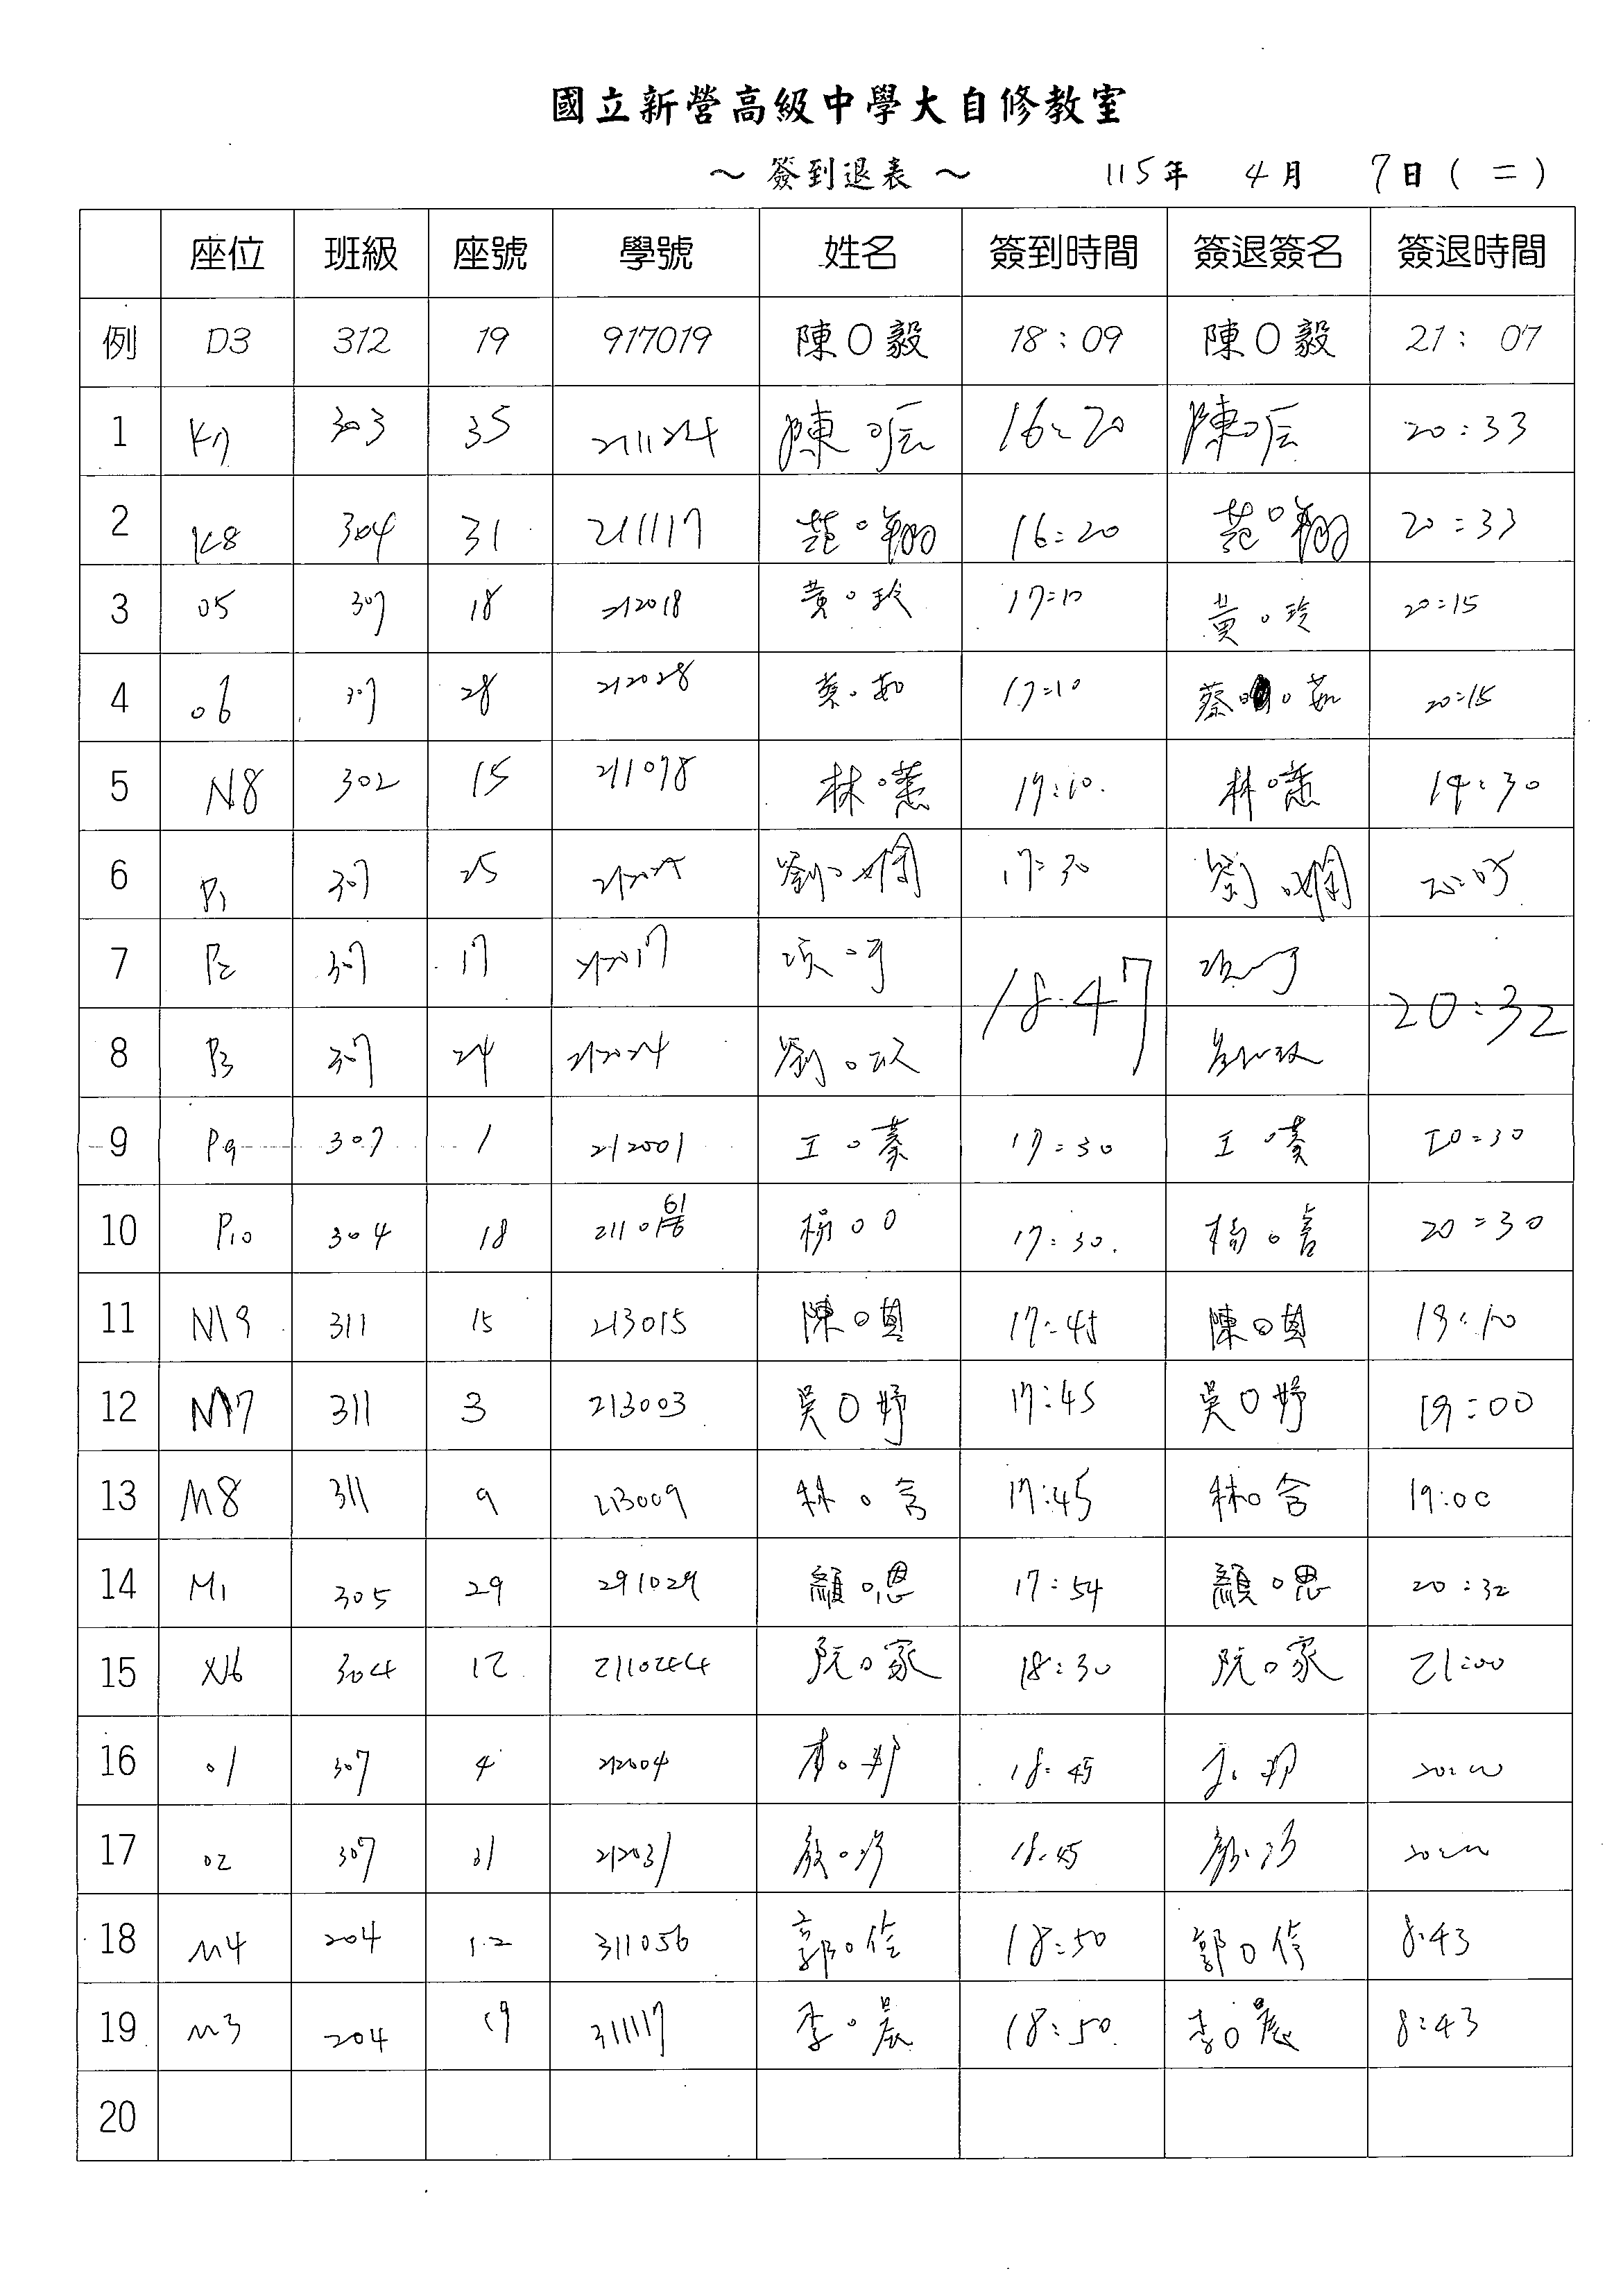 國立新營高級中學大自修教室
～ 簽到退表 ～ 115年 4月 7日(二)
座位 班級 座號 學號 姓名 簽到時間 簽退簽名 簽退時間
例 D3 312 19 917019 陳O毅 18:09 陳O毅 21:07
1 K7 303 35 211124 陳O辰 16:20 陳O辰 20:33
2 K8 304 31 211117 范O翔 16:20 范O翔 20:33
3 05 307 18 212018 黃O玲 17:10 黃O玲 20:15
4 06 307 28 212028 蔡O茹 17:10 蔡O茹 20:15
5 N8 302 15 211078 林O蕙 17:10 林O蕙 19:30
6 P1 307 25 212025 劉O嫺 17:30 劉O嫺 20:05
7 P2 307 17 212017 18:47 20:32
8 P3 307 24 212024 劉O
9 P9 307 1 212001 王O蓁 17:30 王O蓁 20:30
10 P10 304 18 211061 楊OO 17:30 楊O 20:30
11 N19 311 15 213015 陳O 17:45 陳O 19:10
12 N17 311 3 213003 吳O妤 17:45 吳O妤 19:00
13 M8 311 9 213009 林O言 17:45 林O言 19:00
14 M1 305 29 291029 顏O恩 17:54 顏O恩 20:32
15 N6 304 12 2110244 阮O家 18:30 阮O家 21:00
16 01 307 4 212004 18:45
17 02 307 31 212031 18:45
18 M4 204 12 311056 郭O伶 18:50 郭O伶 8:43
19 M3 204 19 311117 李O晨 18:50 李O晨 8:43
20